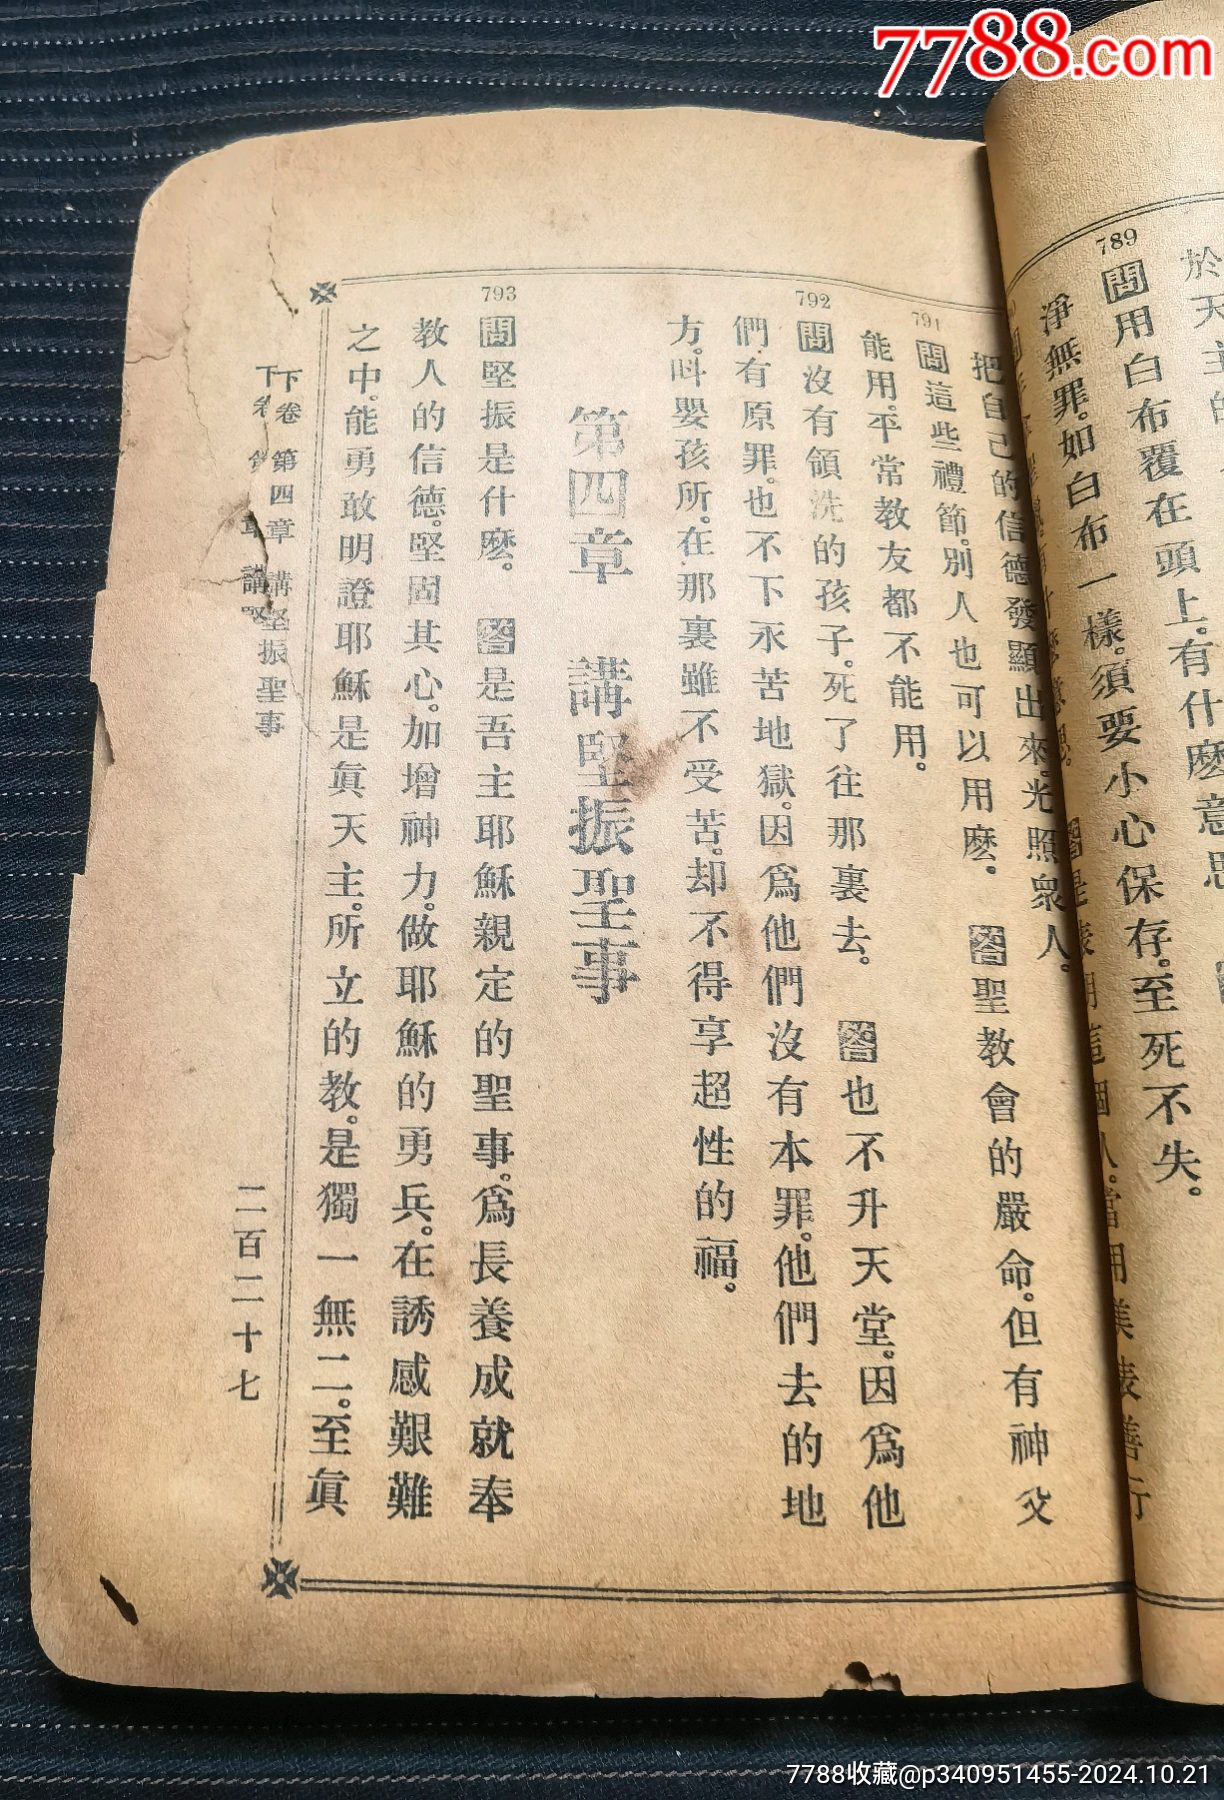 7788.com
於天主的
789
問用白布覆在頭上。有什麽意思
淨無罪。如白布一樣。須要小心保存。至死不失。
把自己的信德發顯出來。光照衆人。
791
問這些禮節。别人也可以用麽。 答聖教會的嚴命。但有神父
能用。平常教友都不能用。
792
問沒有領洗的孩子。死了往那裏去。 答也不升天堂。因爲他
們有原罪。也不下永苦地獄。因爲他們沒有本罪。他們去的地
方。呌嬰孩所。在那裏雖不受苦。却不得享超性的福。
第四章 講堅振聖事
793
問堅振是什麽。 答是吾主耶穌親定的聖事。爲長養成就奉
教人的信德。堅固其心。加增神力。做耶穌的勇兵。在誘感艱難
之中。能勇敢明證耶穌是眞天主。所立的教。是獨一無二。至眞
下卷 第四章 講堅振聖事
二百二十七
7788收藏@p340951455-2024.10.21